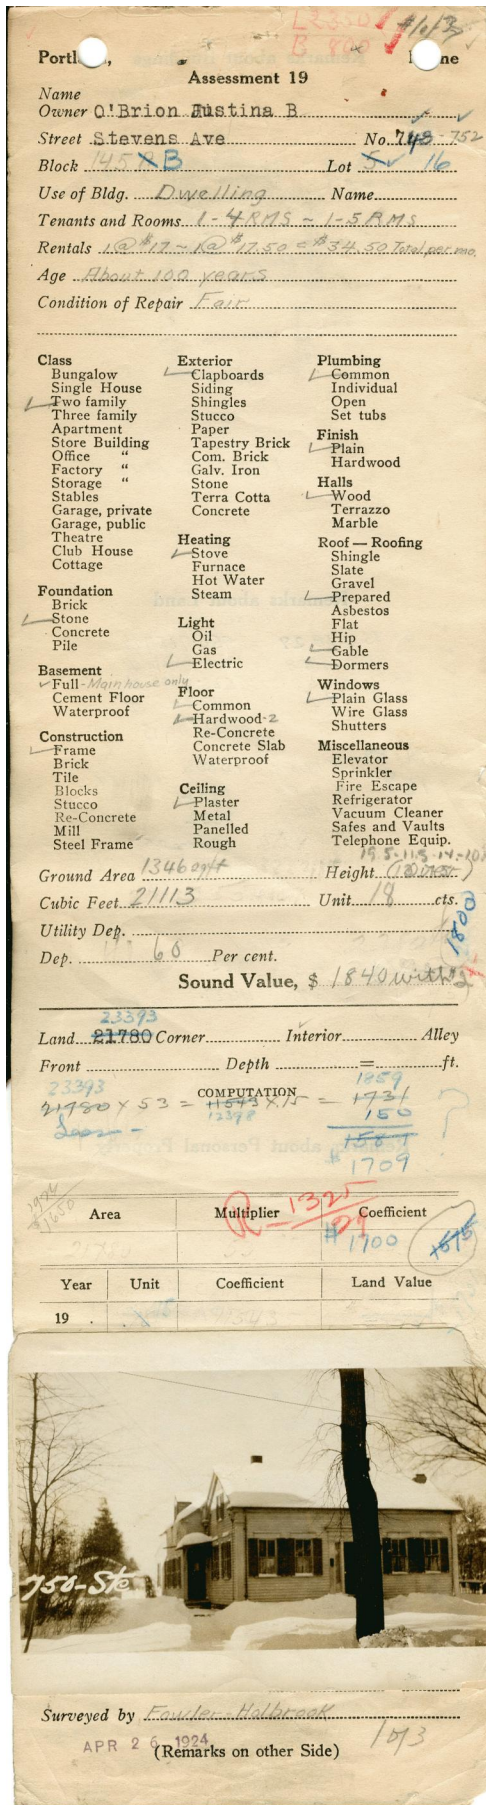 L 2350
B 800
# 1 of 3
Portl , ne
Assessment 19
Name
Owner O'Brion Justina B
Street Stevens Ave No. 748 - 752
Block 145 B Lot 5 16
Use of Bldg. Dwelling Name
Tenants and Rooms 1-4 RMS ~ 1-5 RMS
Rentals 1@ $17 ~ 1@ $17.50 = $34.50 Total per mo.
Age About 100 years
Condition of Repair Fair
Class
Bungalow
Single House
Two family
Three family
Apartment
Store Building
Office "
Factory "
Storage "
Stables
Garage, private
Garage, public
Theatre
Club House
Cottage
Foundation
Brick
Stone
Concrete
Pile
Basement
Full - Main house only
Cement Floor
Waterproof
Construction
Frame
Brick
Tile
Blocks
Stucco
Re-Concrete
Mill
Steel Frame
Exterior
Clapboards
Siding
Shingles
Stucco
Paper
Tapestry Brick
Com. Brick
Galv. Iron
Stone
Terra Cotta
Concrete
Heating
Stove
Furnace
Hot Water
Steam
Light
Oil
Gas
Electric
Floor
Common
Hardwood-2
Re-Concrete
Concrete Slab
Waterproof
Ceiling
Plaster
Metal
Panelled
Rough
Plumbing
Common
Individual
Open
Set tubs
Finish
Plain
Hardwood
Halls
Wood
Terrazzo
Marble
Roof — Roofing
Shingle
Slate
Gravel
Prepared
Asbestos
Flat
Hip
Gable
Dormers
Windows
Plain Glass
Wire Glass
Shutters
Miscellaneous
Elevator
Sprinkler
Fire Escape
Refrigerator
Vacuum Cleaner
Safes and Vaults
Telephone Equip.
19.5-11.5-14-10
Ground Area 1346 Height
Cubic Feet 21113 Unit 18 cts.
Utility Dep.
1800
Dep. 60 Per cent.
Sound Value, $ 1840
23393
Land 21780 Corner Interior Alley
Front Depth = ft.
23393 COMPUTATION 1859
21780 x 53 = 11543 x 15 = 1731
12398 150
Less - 1581
$ 1709
?
Area Multiplier Coefficient
R - 1325
$ 1700 1575
1650
Year Unit Coefficient Land Value
19 .
750-Ste
Surveyed by Fowler - Holbrook
APR 26 1924
(Remarks on other Side)
1 of 3